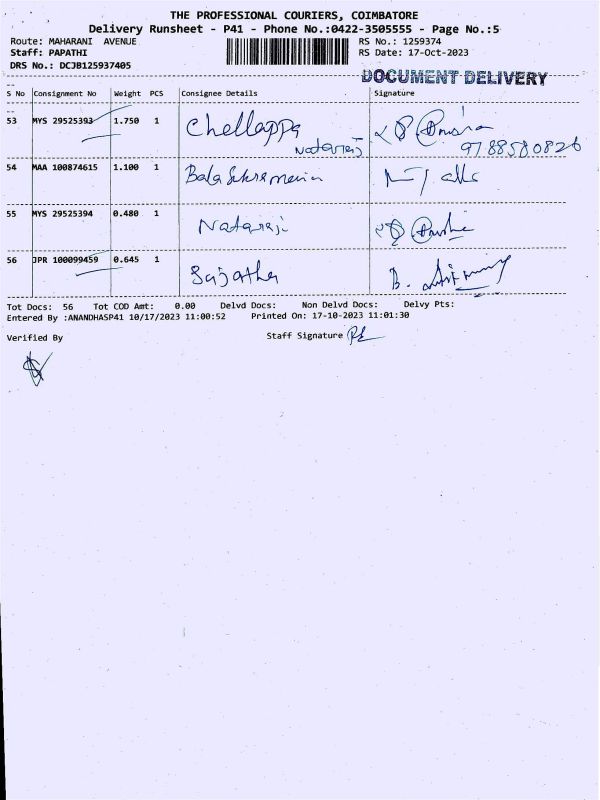 THE PROFESSIONAL COURIERS, COIMBATORE
Delivery Runsheet - P41 - Phone No.:0422-3505555 - Page No.:5
Route: MAHARANI AVENUE RS No.: 1259374
Staff: PAPATHI RS Date: 17-Oct-2023
DRS No.: DCJB125937405
DOCUMENT DELIVERY
S No Consignment No Weight PCS Consignee Details Signature
53 MYS 29525393 1.750 1 Chellappa
Nataraj 9788580826
54 MAA 100874615 1.100 1
55 MYS 29525394 0.480 1 Nataraj
56 JPR 100099459 0.645 1 Sujatha
Tot Docs: 56 Tot COD Amt: 0.00 Delvd Docs: Non Delvd Docs: Delvy Pts:
Entered By :ANANDHASP41 10/17/2023 11:00:52 Printed On: 17-10-2023 11:01:30
Verified By Staff Signature